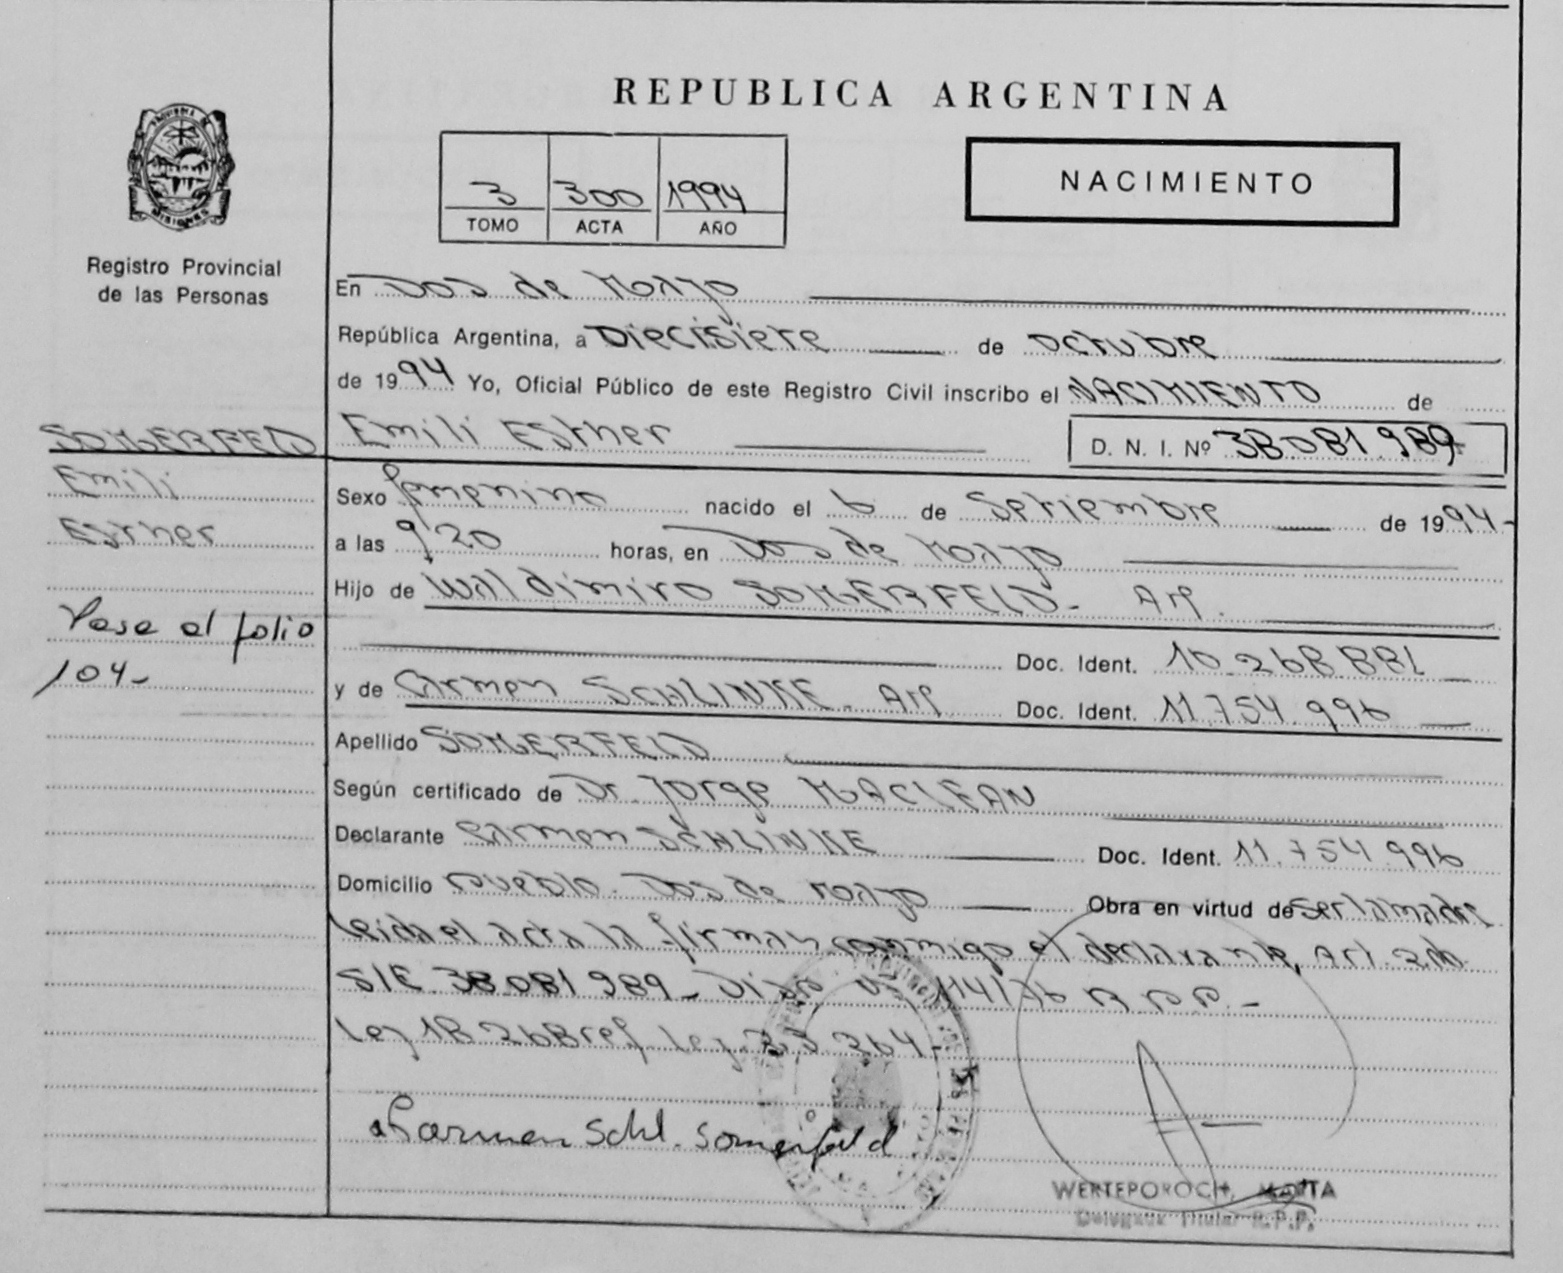 REPUBLICA ARGENTINA
3 300 1994
TOMO ACTA AÑO
NACIMIENTO
PROVINCIA DE
MISIONES
Registro Provincial
de las Personas
En Dos de Mayo
República Argentina, a Diecisiete de octubre
de 1994 Yo, Oficial Público de este Registro Civil inscribo el NACIMIENTO de
Emili Esther D. N. I. Nº 38.081.989
SOMERFELD
Emili
Esther
Pase al folio
104-
Sexo femenino nacido el 6 de Setiembre de 1994-
a las 9,20 horas, en Dos de Mayo
Hijo de Walldimiro SOMERFELD- Arg.
Doc. Ident. 10.268.881
y de Carmen SCHLINKE. Arg Doc. Ident. 11.754.996
Apellido SOMERFELD
Según certificado de Dr. Jorge MACLEAN
Declarante Carmen SCHLINKE Doc. Ident. 11.754.996
Domicilio Pueblo. Dos de Mayo Obra en virtud de ser la madre
leida el acta la firman conmigo el declarante, Art.
S/E 38.081.989- Disp Nº 114/76 R.P.P.-
Ley 18.268 ref Ley 23.264-
Carmen Schl. Somerfeld
WERTEPOROCH, MARTA
Delegada Titular R.P.P.